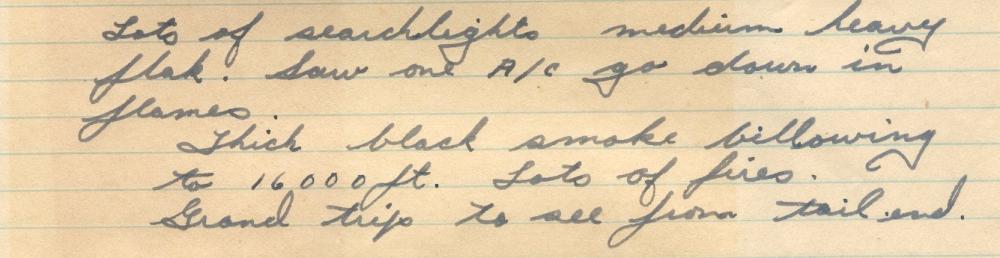 Lots of searchlights medium heavy
flak. Saw one A/C go down in
flames.
Thick black smoke billowing
to 16000 ft. Lots of fires.
Grand trip to see from tail end.